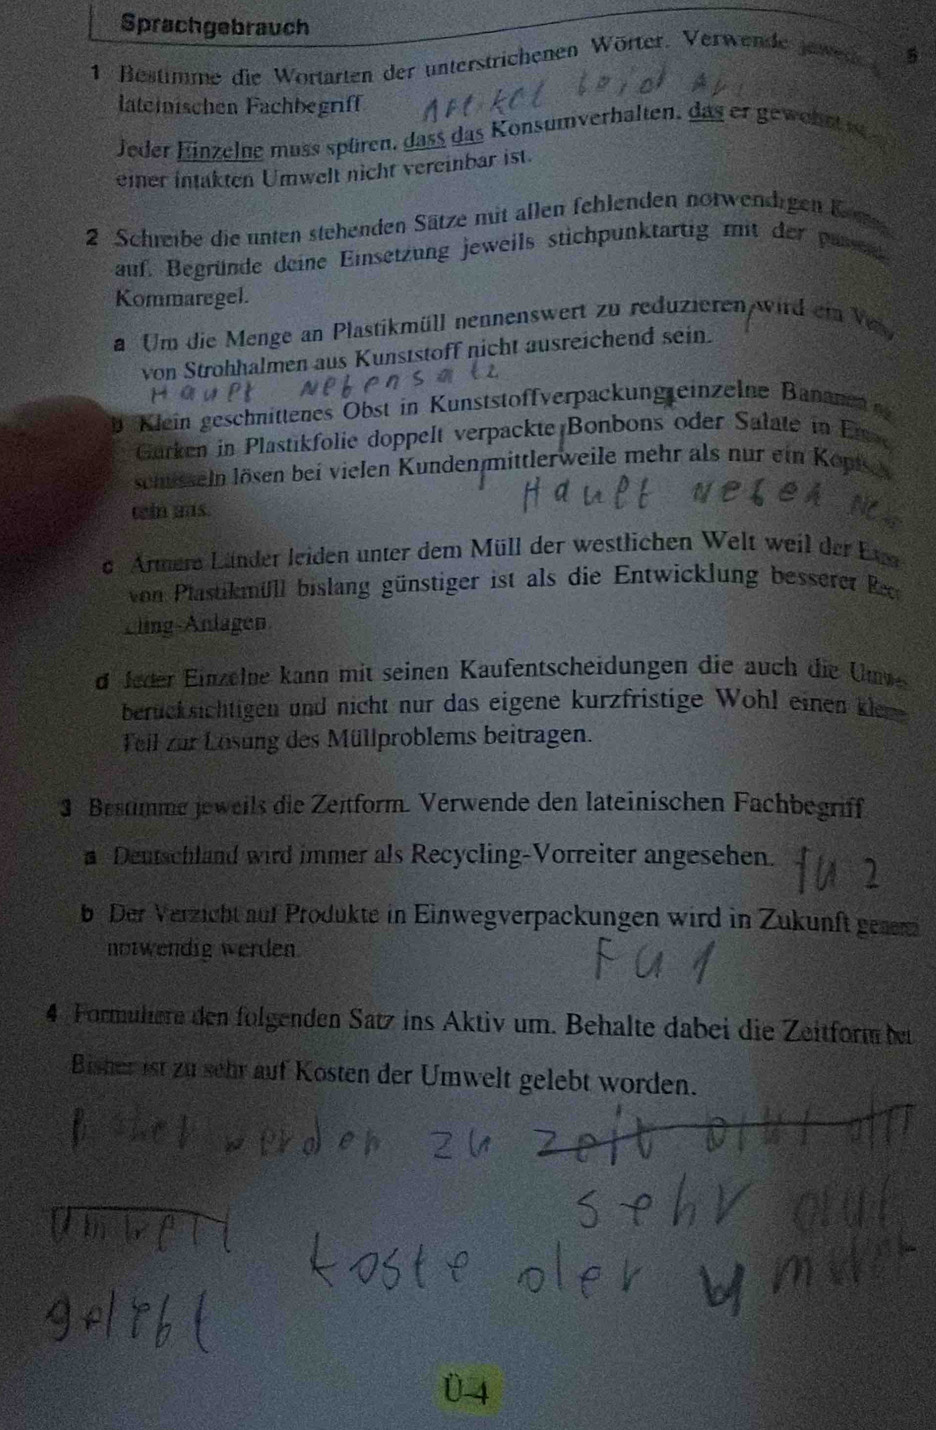 Sprachgebrauch
1 Bestimme die Wortarten der unterstrichenen Wörter. Verwende jeweils
5
lateinischen Fachbegriff
Artikel
Jeder Einzelne muss spüren, dass das Konsumverhalten, das er gewohnt ist,
einer intakten Umwelt nicht vereinbar ist.
2 Schreibe die unten stehenden Sätze mit allen fehlenden notwendigen
auf. Begründe deine Einsetzung jeweils stichpunktartig mit der
Kommaregel.
a Um die Menge an Plastikmüll nennenswert zu reduzieren, wird ein
von Strohhalmen aus Kunststoff nicht ausreichend sein.
Haupt Nebensatz
b Klein geschnittenes Obst in Kunststoffverpackung, einzelne Bananen
Gurken in Plastikfolie doppelt verpackte, Bonbons oder Salate in
schüsseln lösen bei vielen Kunden, mittlerweile mehr als nur ein Kopfsch
teln aus.
Haupt Neben
c Ärmere Länder leiden unter dem Müll der westlichen Welt weil der
von Plastikmüll bislang günstiger ist als die Entwicklung besserer
cling-Anlagen.
d Jeder Einzelne kann mit seinen Kaufentscheidungen die auch die
berücksichtigen und nicht nur das eigene kurzfristige Wohl einen
Teil zur Lösung des Müllproblems beitragen.
3 Bestimme jeweils die Zeitform. Verwende den lateinischen Fachbegriff
a Deutschland wird immer als Recycling-Vorreiter angesehen.
fu 2
b Der Verzicht auf Produkte in Einwegverpackungen wird in Zukunft
notwendig werden.
Fu 1
4 Formuliere den folgenden Satz ins Aktiv um. Behalte dabei die Zeitform bei
Bisher ist zu sehr auf Kosten der Umwelt gelebt worden.
Bisher werden zu zeit auf
sehr auf
Umwelt
koste der
gelebt
Ü-4